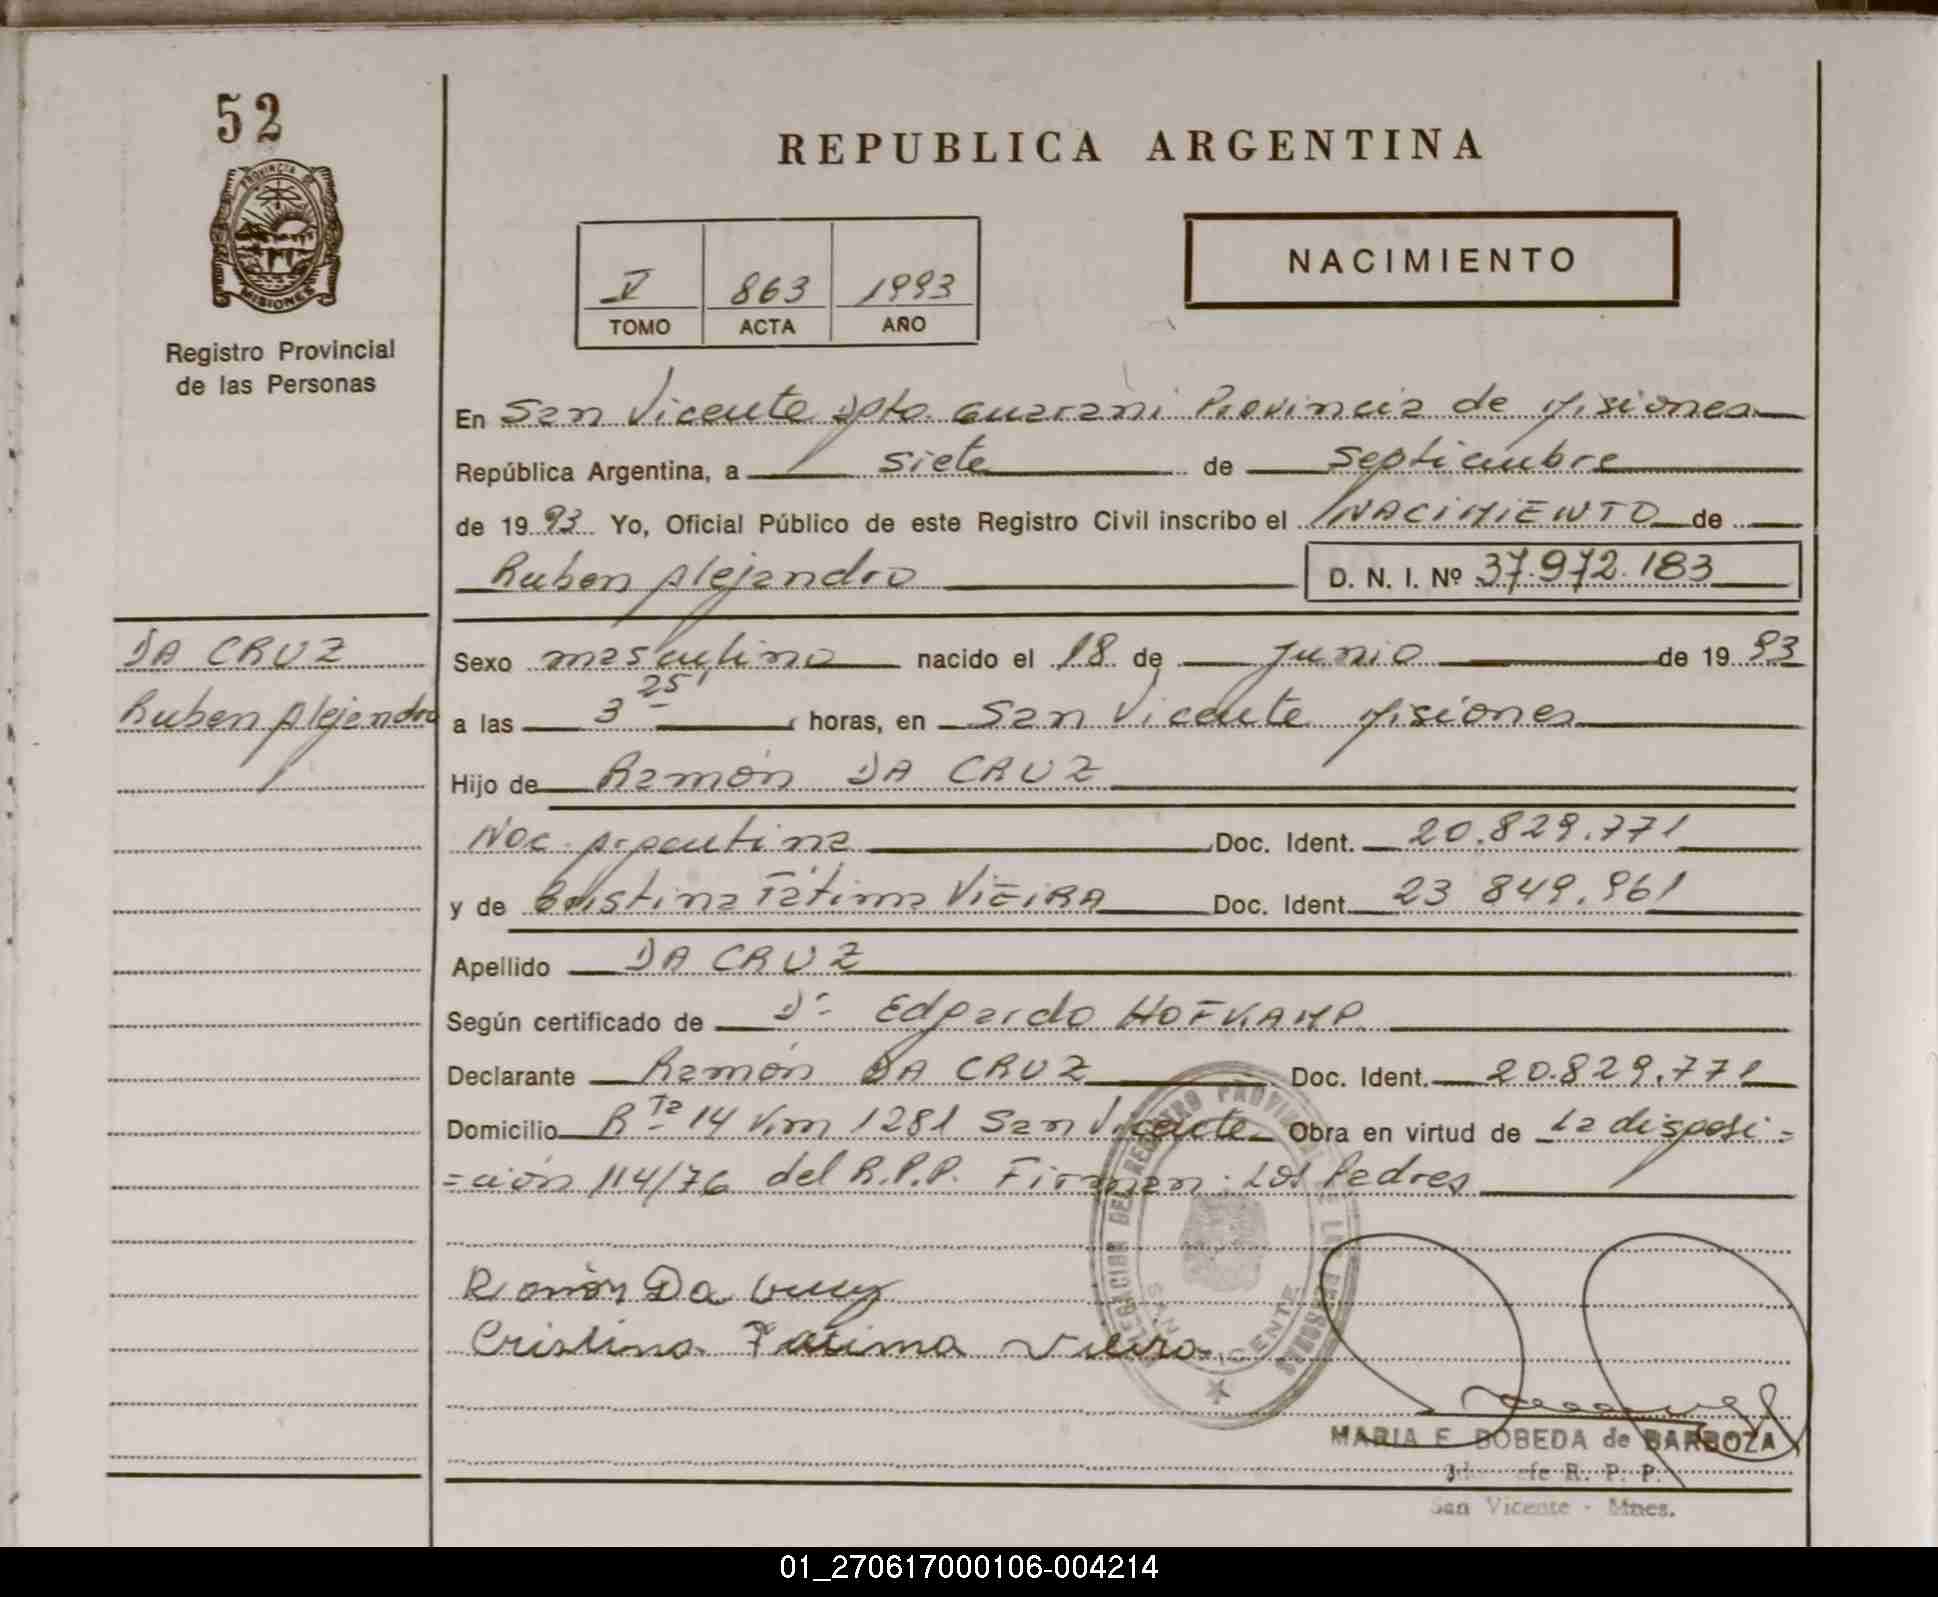 52
PROVINCIA DE
MISIONES
Registro Provincial
de las Personas
REPUBLICA ARGENTINA
V 863 1993
TOMO ACTA AÑO
NACIMIENTO
En San Vicente Dpto. Guarani Provincia de Misiones
República Argentina, a siete de Septiembre
de 1993 Yo, Oficial Público de este Registro Civil inscribo el NACIMIENTO de
Ruben Alejandro D. N. I. Nº 37.972.183
DA CRUZ
Ruben Alejandro
Sexo masculino nacido el 18 de Junio de 1993
a las 3 25' horas, en San Vicente Misiones
Hijo de Ramón DA CRUZ
Nac. Argentina Doc. Ident. 20.829.771
y de Cristina Fátima VIEIRA Doc. Ident. 23 849.961
Apellido DA CRUZ
Según certificado de Dr Edgardo HOFKAMP
Declarante Ramón DA CRUZ Doc. Ident. 20.829.771
Domicilio Rta 14 Km 1281 San Vicente Obra en virtud de La disposi=
=ción 114/76 del R.P.P. Firman: Los Padres
DELEGACION DEL REGISTRO PROVINCIAL DE LAS PERSONAS
SAN VICENTE
Ramón Da Cruz
Cristina Fatima Vieira
MARIA E. BOBEDA de BARBOZA
R. P. P.
San Vicente - Mnes.
01_270617000106-004214